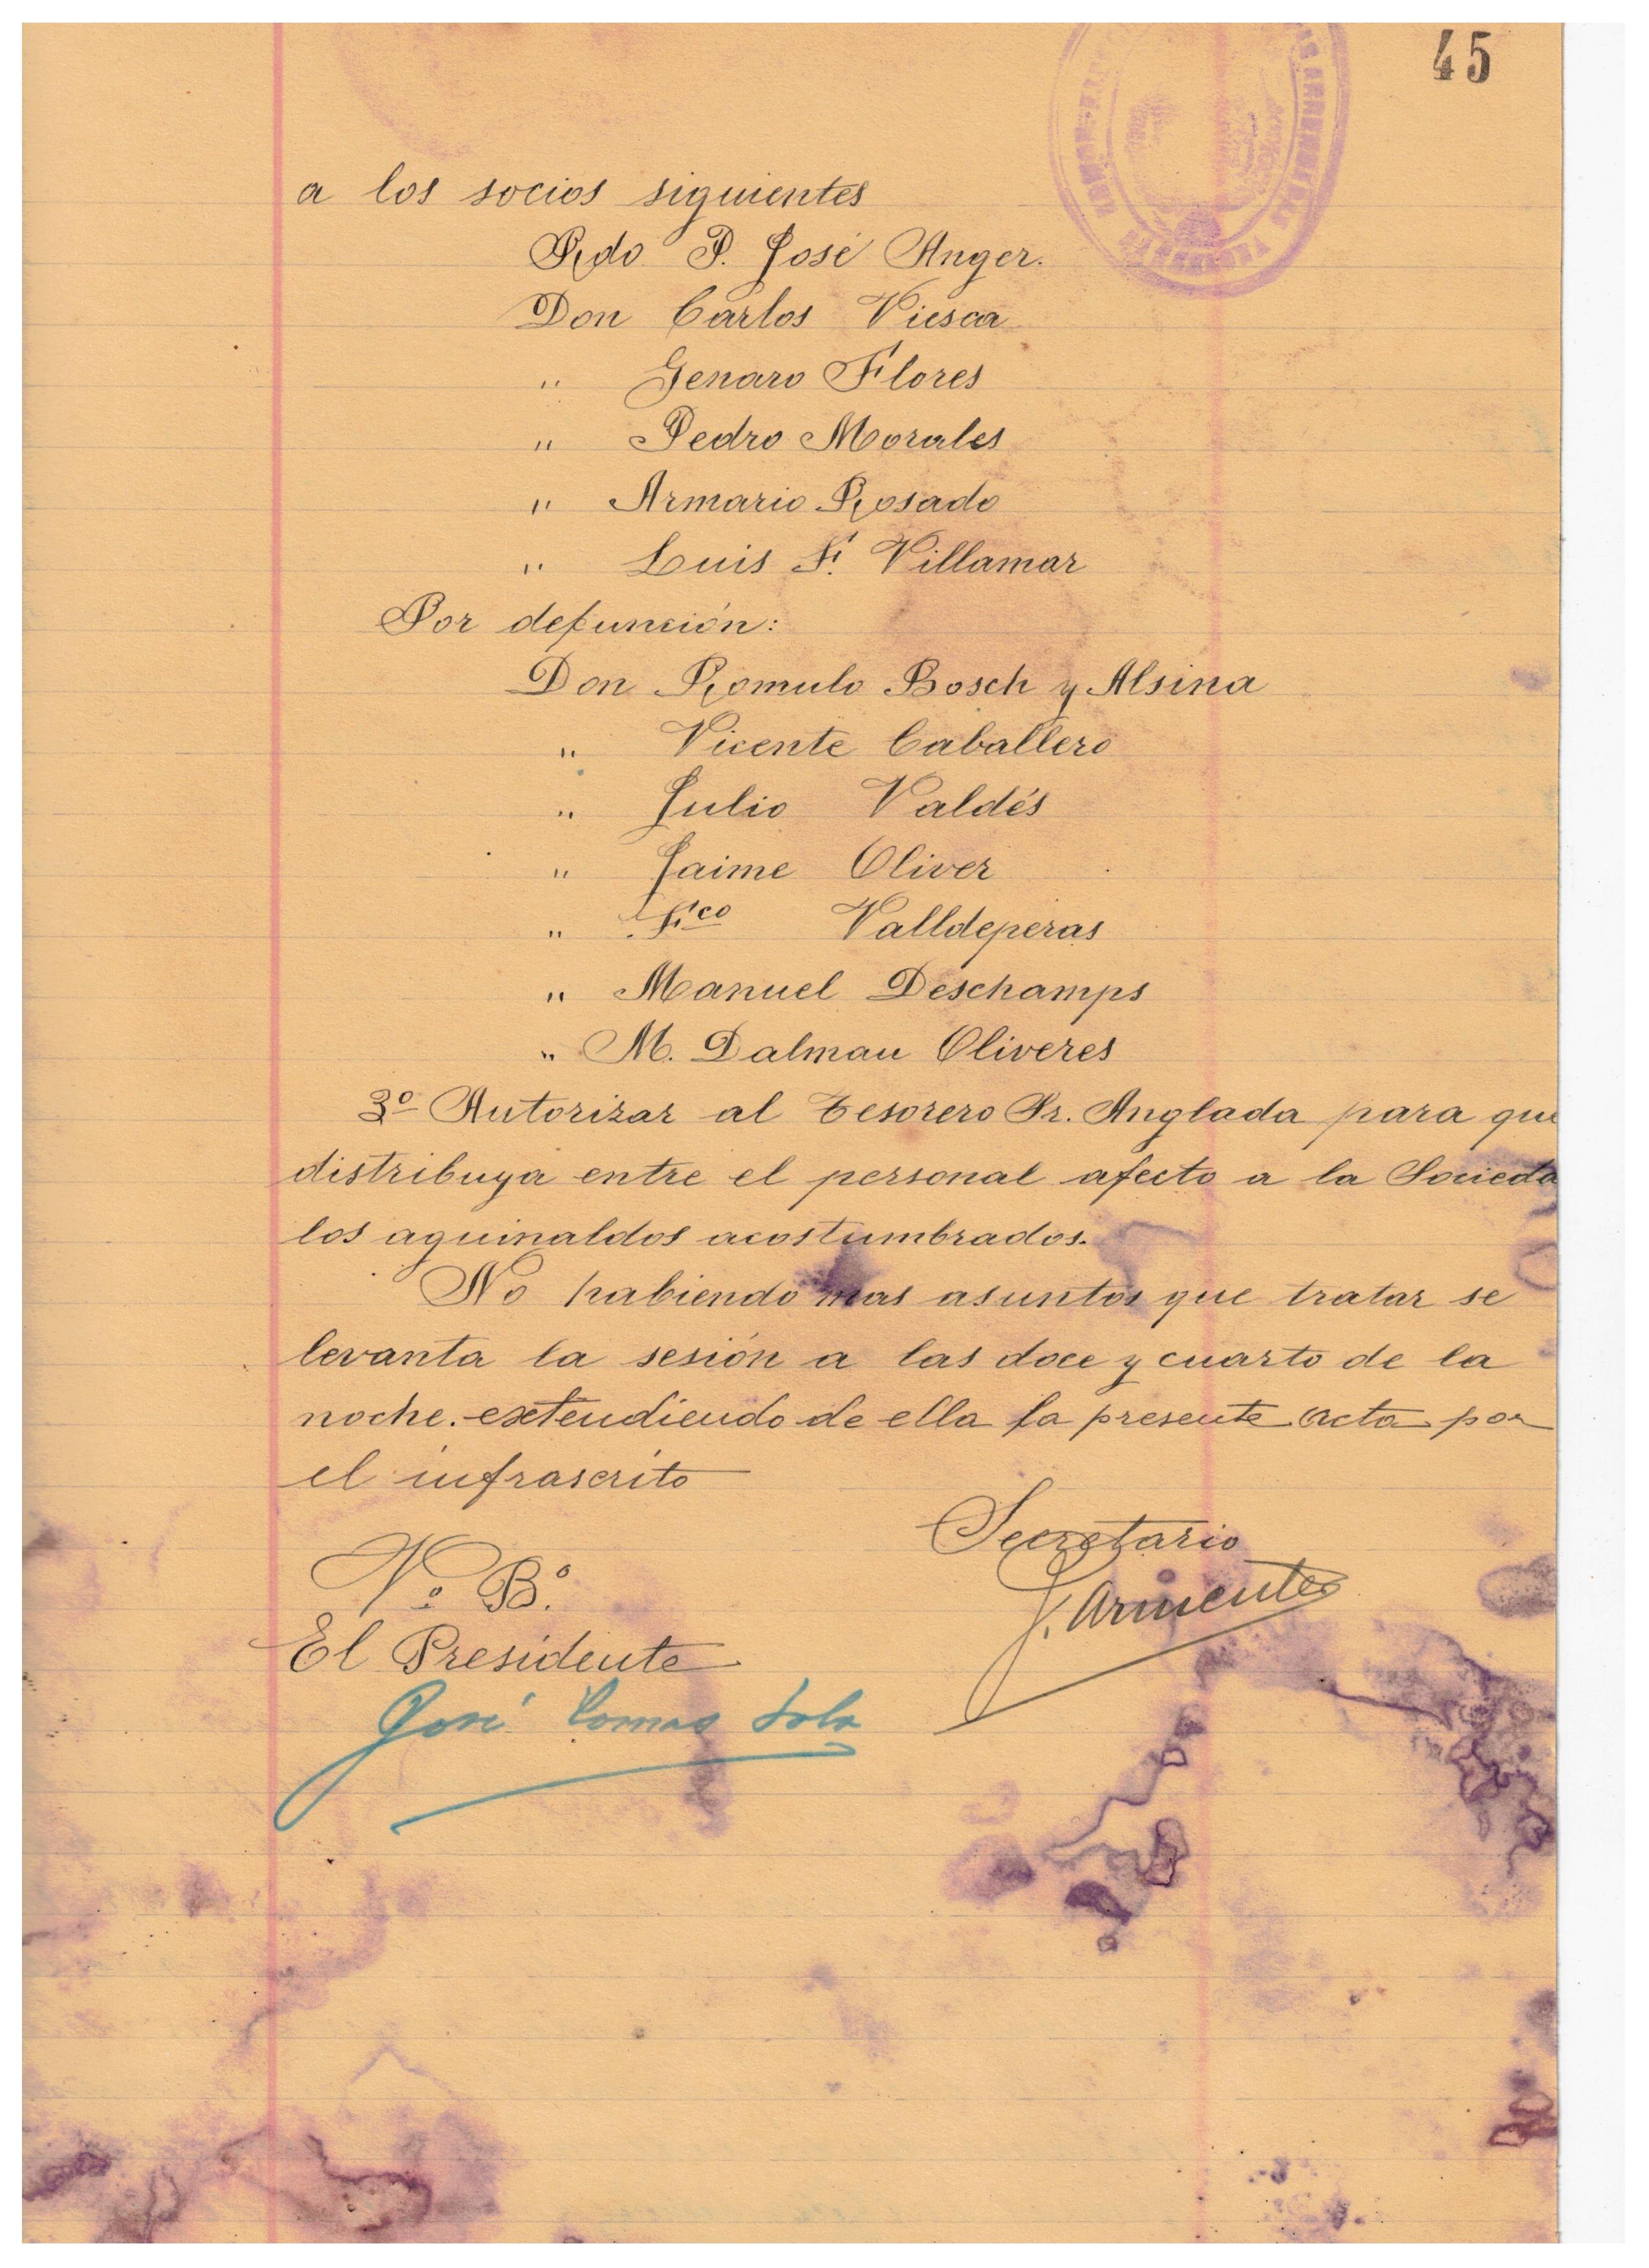 45
a los socios siguientes
Rdo P. José Anger.
Don Carlos Viesca
" Genaro Flores
" Pedro Morales
" Armario Rosado
" Luis F. Villamar
Por defunción:
Don Romulo Bosch y Alsina
" Vicente Caballero
" Julio Valdés
" Jaime Oliver
" Fco Valldeperas
" Manuel Deschamps
" M. Dalmau Oliveres
3º Autorizar al tesorero Sr. Anglada para que
distribuya entre el personal afecto a la Socieda
los aguinaldos acostumbrados.
No habiendo mas asuntos que tratar se
levanta la sesión a las doce y cuarto de la
noche. extendiendo de ella la presente acta por
el infrascrito
Secretario
J. Armenter
Vº Bº
El Presidente
José Comas Sola